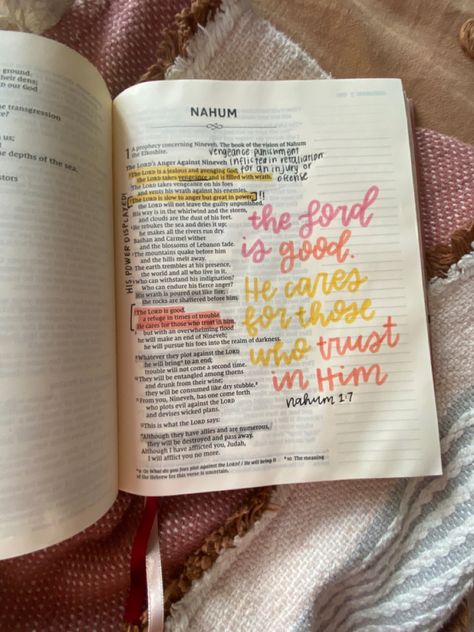 ground.
their dens;
D our God
he transgression
us;
e depths of the sea.
stors
NAHUM
1 A prophecy concerning Nineveh. The book of the vision of Nahum
the Elkoshite.
The LORD's Anger Against Nineveh
2 The LORD is a jealous and avenging God;
the LORD takes vengeance and is filled with wrath.
The LORD takes vengeance on his foes
and vents his wrath against his enemies.
3 The LORD is slow to anger but great in power;
the LORD will not leave the guilty unpunished.
His way is in the whirlwind and the storm,
and clouds are the dust of his feet.
4 He rebukes the sea and dries it up;
he makes all the rivers run dry.
Bashan and Carmel wither
and the blossoms of Lebanon fade.
5 The mountains quake before him
and the hills melt away.
The earth trembles at his presence,
the world and all who live in it.
6 Who can withstand his indignation?
Who can endure his fierce anger?
His wrath is poured out like fire;
the rocks are shattered before him.
7 The LORD is good,
a refuge in times of trouble.
He cares for those who trust in him,
8 but with an overwhelming flood
he will make an end of Nineveh;
he will pursue his foes into the realm of darkness.
9 Whatever they plot against the LORD
he will bring to an end;
trouble will not come a second time.
10 They will be entangled among thorns
and drunk from their wine;
they will be consumed like dry stubble.
11 From you, Nineveh, has one come forth
who plots evil against the LORD
and devises wicked plans.
12 This is what the LORD says:
"Although they have allies and are numerous,
they will be destroyed and pass away.
Although I have afflicted you, Judah,
I will afflict you no more.
a 9 Or What do you foes plot against the LORD? / He will bring it
of the Hebrew for this verse is uncertain.
10 The meaning
vengeance: punishment
inflicted in retaliation
for an injury or
offense
!!
HIS POWER DISPLAYED!
the Lord
is good.
He cares
for those
who trust
in Him
nahum 1:7